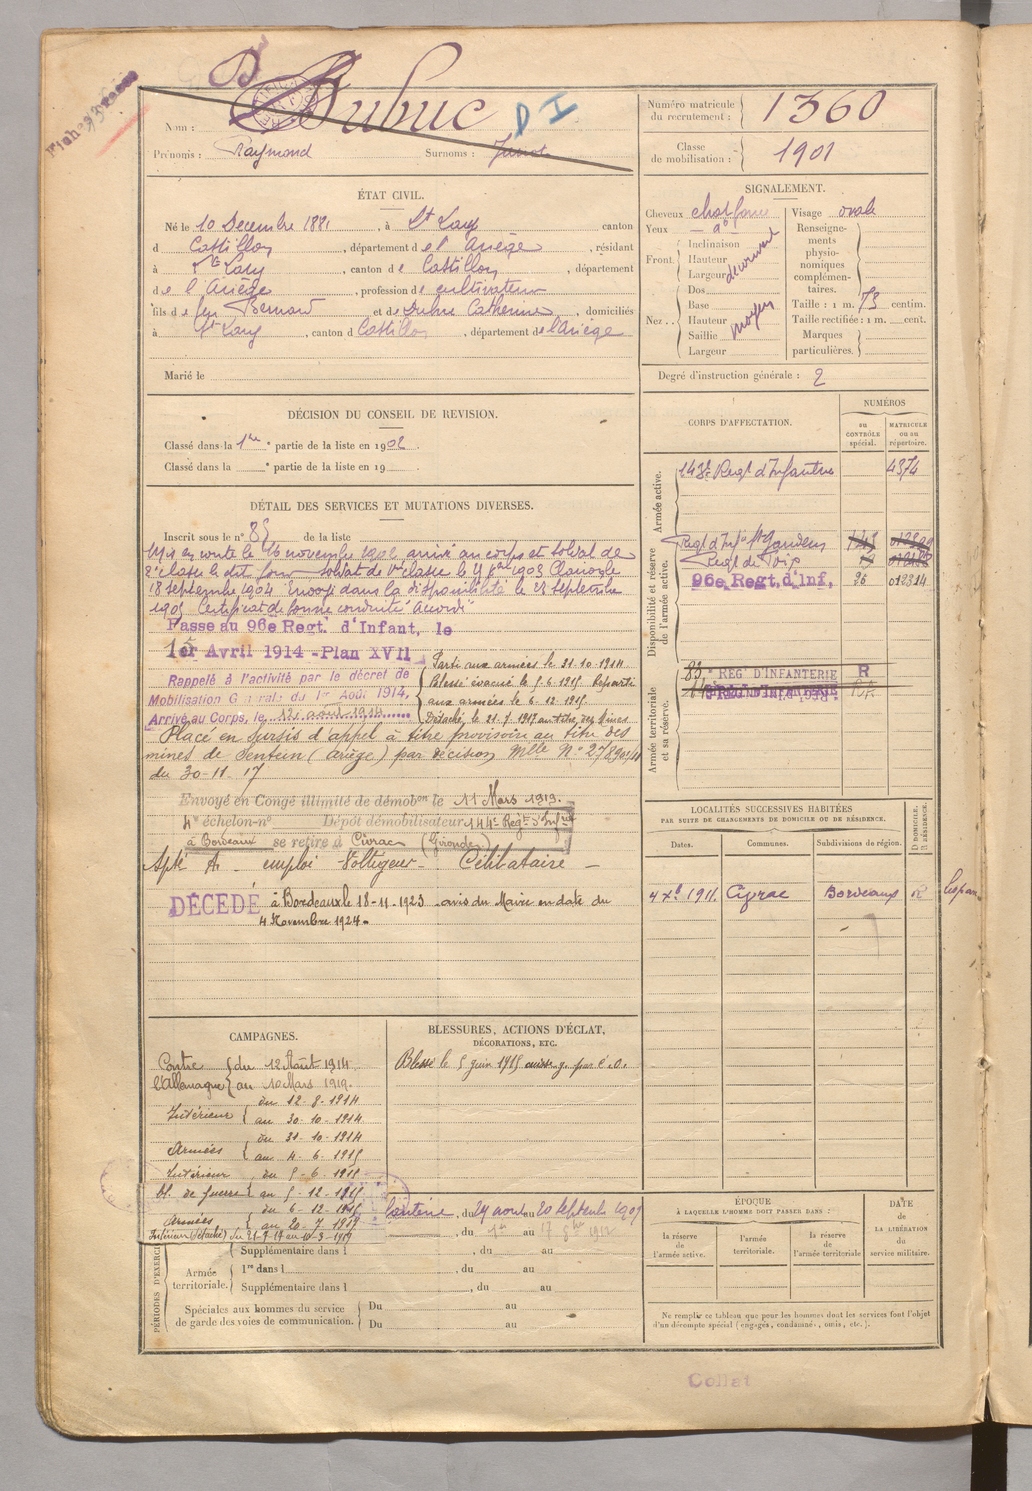 Fiches
Dubuc
D I
Nom :
Prénoms : Raymond Surnoms :
Numéro matricule
du recrutement : 1360
Classe
de mobilisation : 1901
ÉTAT CIVIL.
Né le 10 Decembre 1881, à St Lary canton
d Castillon, département de l'Ariège, résidant
à St Lary, canton de Castillon, département
de l'Ariège, profession de cultivateur
fils de feu Bernard et de Dubuc Catherine, domiciliés
à St Lary, canton d Castillon, département de l'Ariège
Marié le
SIGNALEMENT.
Cheveux
Yeux
Front.
Inclinaison
Hauteur
Largeur
Nez..
Dos
Base
Hauteur
Saillie
Largeur
moyen
Visage ovale
Renseigne-
ments
physio-
nomiques
complémen-
taires.
Taille : 1 m. 73 centim.
Taille rectifiée : 1 m. cent.
Marques
particulières.
Degré d'instruction générale : 2
DÉCISION DU CONSEIL DE REVISION.
Classé dans la 1re partie de la liste en 1902.
Classé dans la partie de la liste en 19
DÉTAIL DES SERVICES ET MUTATIONS DIVERSES.
Inscrit sous le n° 85 de la liste
Mis en route le 16 novembre 1902 arrivé au corps et soldat de
2e classe le dit jour soldat de 1re classe le 1903
18 septembre 1904 Envoyé dans la disponibilité le 23 septembre
1905 Certificat de bonne conduite Accordé
Passe au 96e Regt. d'Infant, le
1er Avril 1914 - Plan XVII
Rappelé à l'activité par le décret de
Mobilisation Générale du 1er Août 1914,
Arrivé au Corps, le 12 août 1914
Parti aux armées le 31-10-1914
Blessé évacué le 5-6-1915 Reparti
aux armées le 6-12-1915
Détaché le 21-7-1917 au titre des Mines
Placé en sursis d'appel à titre provisoire au titre des
mines de Sentein (Ariège) par décision Mlle N°
du 30-11-17
Envoyé en Congé illimité de démobon le 11 Mars 1919.
4e échelon-n° Dépôt démobilisateur 144e Regt d'Infrie
à Bordeaux se retire à Civrac (Gironde)
Apte A - emploi Voltigeur - Célibataire -
DÉCÉDÉ à Bordeaux le 18-11-1923 - avis du Maire en date du
4 Novembre 1924.
CORPS D'AFFECTATION.
NUMÉROS
au
CONTRÔLE
spécial.
MATRICULE
ou au
répertoire.
Armée active.
143e Regt d'Infanterie 4374
Disponibilité et réserve
de l'armée active.
Regt d'Infie St Gaudens 143
Regt de Foix
96e Regt. d'Inf, 36 012314
Armée territoriale
et sa réserve.
83e REGt D'INFANTERIE R
LOCALITÉS SUCCESSIVES HABITÉES
PAR SUITE DE CHANGEMENTS DE DOMICILE OU DE RÉSIDENCE.
Dates. Communes. Subdivisions de région.
D DOMICILE.
R RÉSIDENCE.
4 Xbre 1911. Civrac Bordeaux R
CAMPAGNES.
Contre du 12 Août 1914
l'Allemagne au 10 Mars 1919.
Intérieur du 12-8-1914
au 30-10-1914
Armées du 31-10-1914
au 4-6-1915
Intérieur du 5-6-1915
bl. de guerre au 5-12-1915
Armées du 6-12-1915
au 20-7-1917
Intérieur (détaché) du 21-7-17 au 10-3-1919
BLESSURES, ACTIONS D'ÉCLAT,
DÉCORATIONS, ETC.
Blessé le 5 Juin 1915 cuisse g. par é. o.
PÉRIODES D'EXERCI
, du 24 août au 20 Septembre 1907
, du 1er au 17 1912
Armée
territoriale.
Supplémentaire dans l , du au
1re dans l , du au
Supplémentaire dans l , du au
Spéciales aux hommes du service
de garde des voies de communication.
Du au
Du au
ÉPOQUE
À LAQUELLE L'HOMME DOIT PASSER DANS :
la réserve
de
l'armée active.
l'armée
territoriale.
la réserve
de
l'armée territoriale
DATE
de
LA LIBÉRATION
du
service militaire.
Ne remplir ce tableau que pour les hommes dont les services font l'objet
d'un décompte spécial (engagés, condamnés, omis, etc.).
Collat